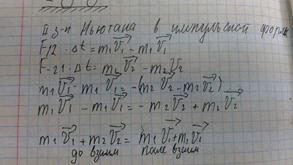 II з-н Ньютона в импульсной форме
F12 · Δt = m₁v₁⃗ - m₁v₁⃗
F-21 · Δt = m₂v₂⃗ - m₂v₂
m₁v₁⃗ - m₁v₁⃗ = -(m₂v₂⃗ - m₂v₂⃗)
m₁v₁⃗ - m₁v₁⃗ = -m₂v₂⃗ + m₂v₂⃗
m₁v₁⃗ + m₂v₂⃗ = m₁v₁⃗ + m₂v₂⃗
до взаим после взаим